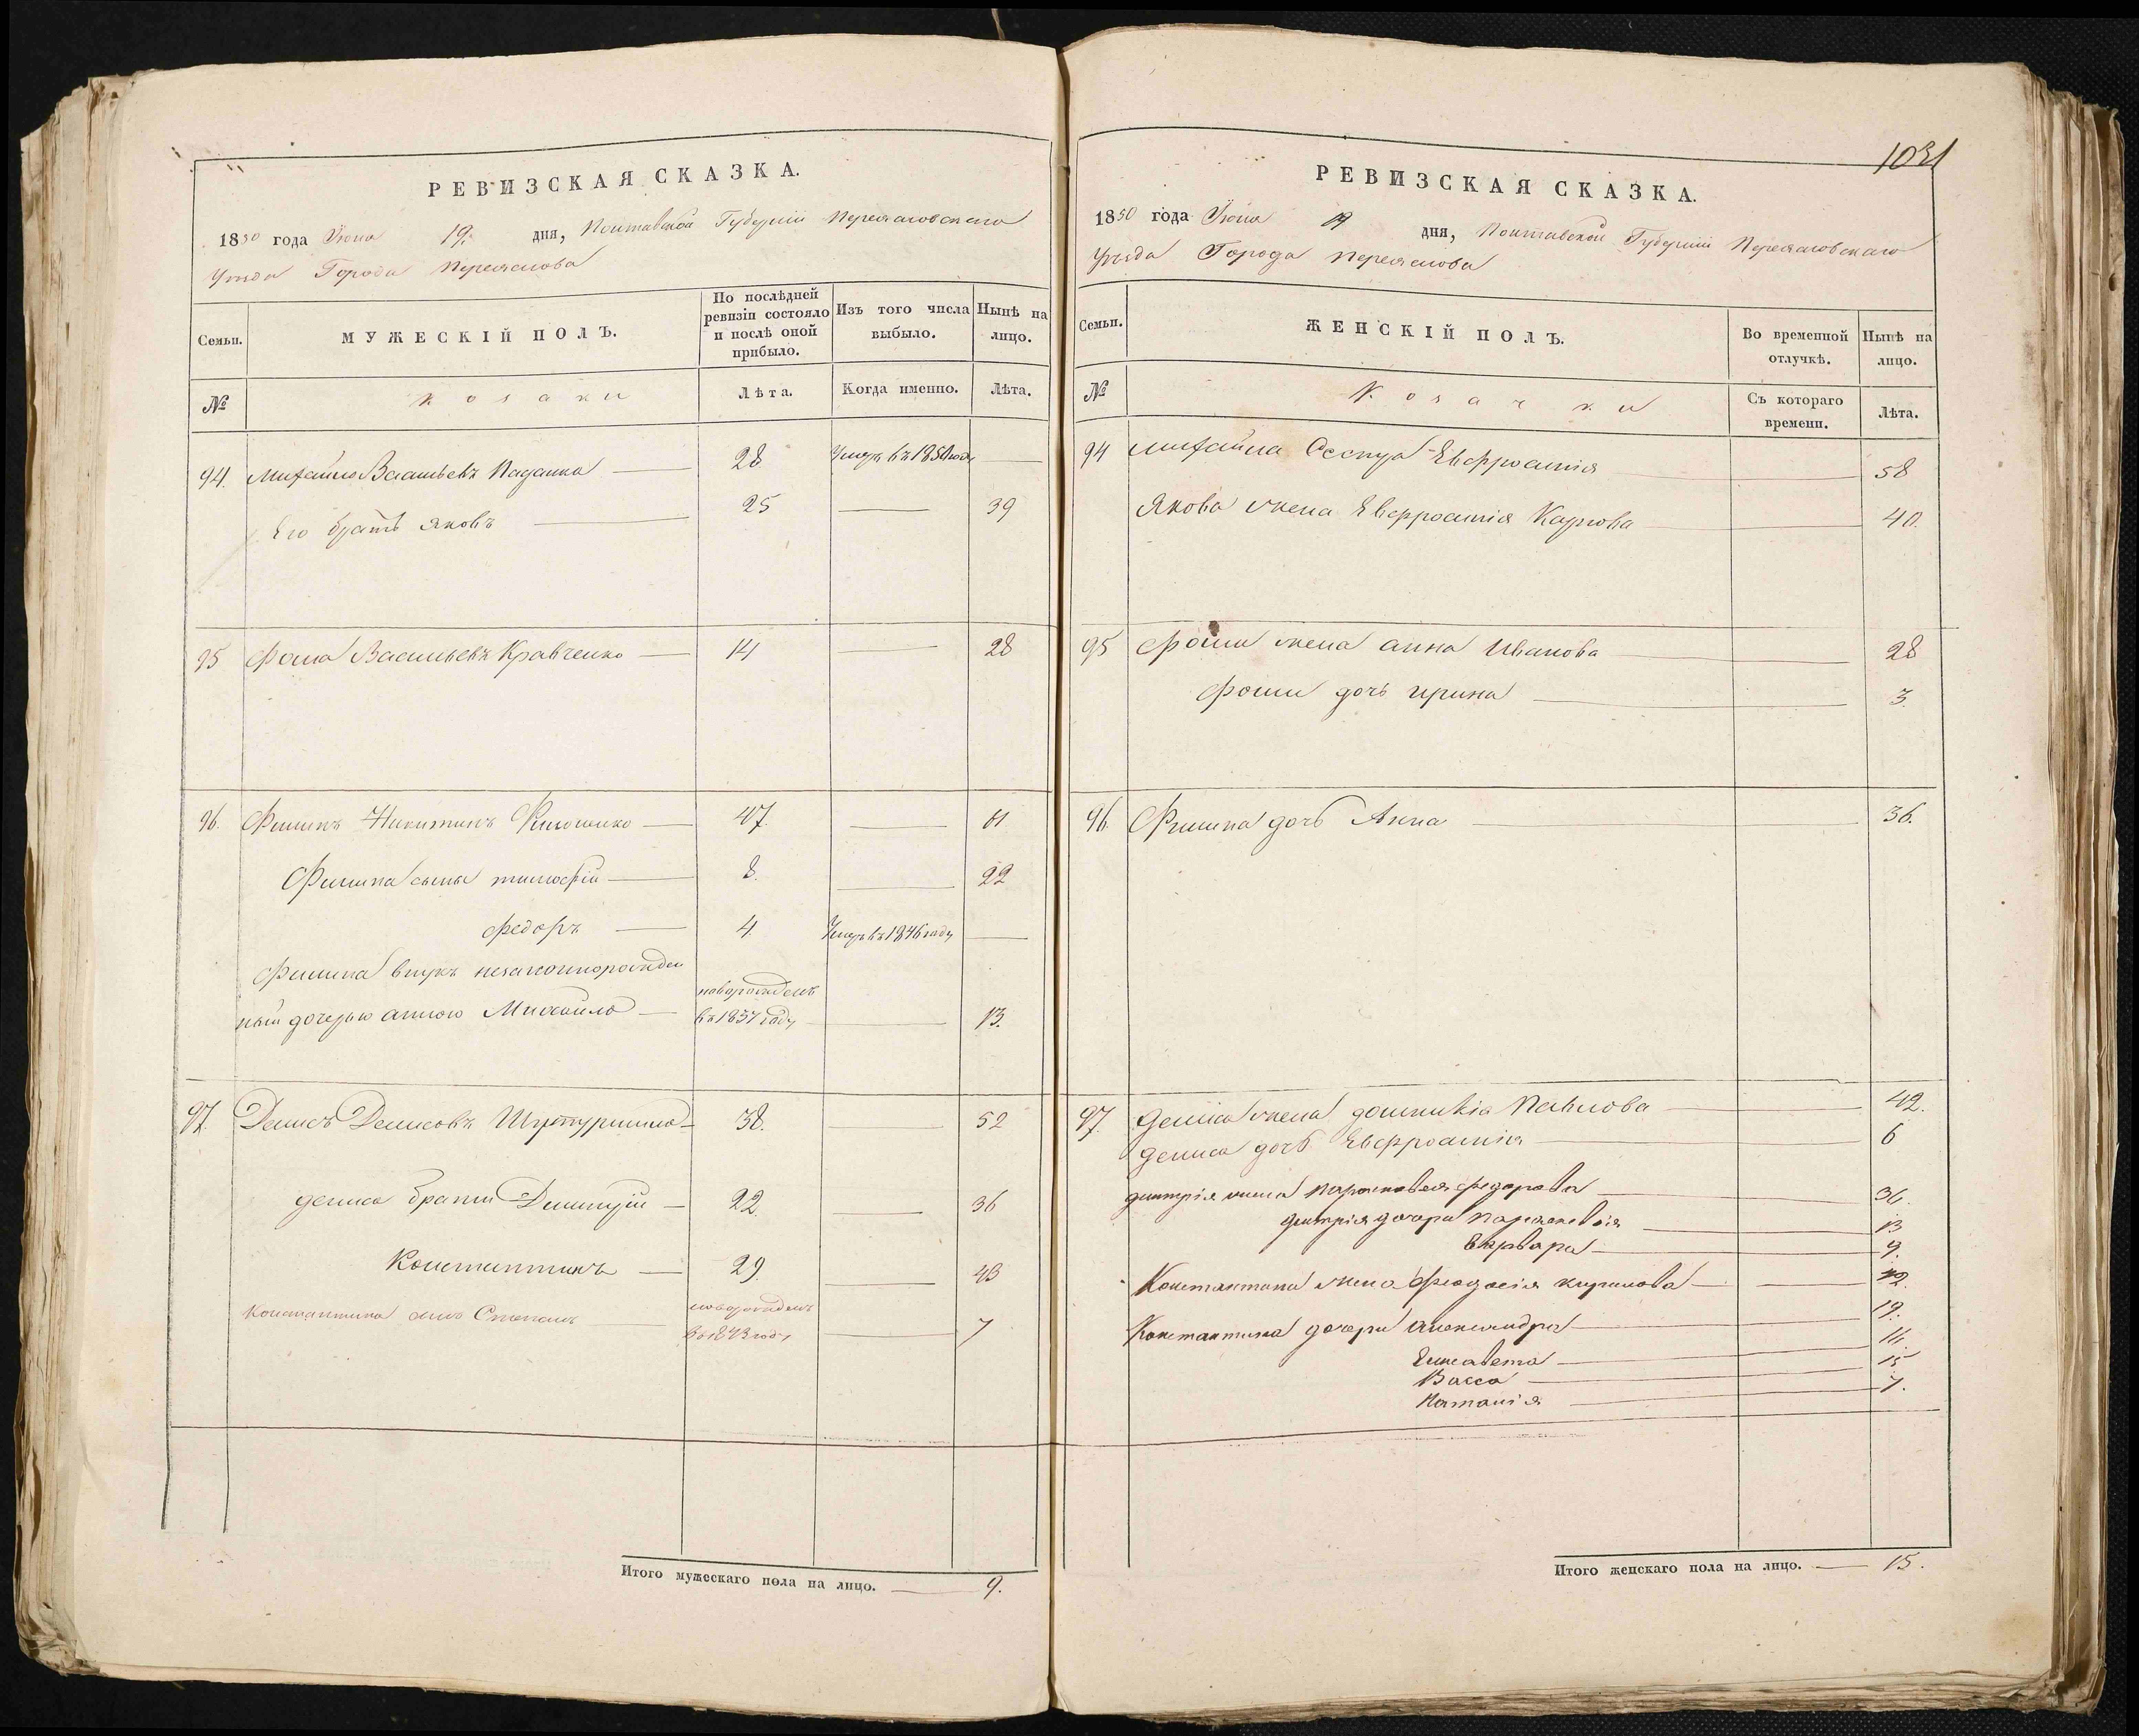 РЕВИЗСКАЯ СКАЗКА.
1850 года Июня 19. дня, Полтавской Губерніи Переясловскаго
Уезда Города Переяслова
Семьи.
МУЖЕСКІЙ ПОЛЪ.
По послѣдней ревизіи состояло и послѣ оной прибыло.
Изъ того числа выбыло.
Нынѣ на лицо.
№
Козаки
Лѣта.
Когда именно.
Лѣта.
94. Михайло Васильевъ 28 Умеръ въ 1850 году
Его братъ Яковъ 25 39
95 Фома Васильевъ Кравченко 14 28
96. Филипъ Никитинъ 47. 61
Филипа сыны тимофій 8. 22
федоръ 4. Умеръ въ 1846 году
Филипа внукъ незаконнорожден
ный дочерью анною Михайло новорожденъ въ 1837 году 13.
97. Денисъ Денисовъ 38. 52
дениса братья Димитрій 22 36
Константинъ 29. 43
Константина сынъ Степанъ новорожденъ въ 1843 году 7
Итого мужескаго пола на лицо. 9.
1031
РЕВИЗСКАЯ СКАЗКА.
1850 года Июня 19 дня, Полтавской Губерніи Переясловскаго
Уезда Города Переяслова
Семьи.
ЖЕНСКІЙ ПОЛЪ.
Во временной отлучкѣ.
Нынѣ на лицо.
№
Козачки
Съ котораго времени.
Лѣта.
94 михайла Сестра Евфросинія 58
Якова жена Евфросинія Карпова 40.
95 Фомы жена анна Иванова 28
Фомы дочь ирина 3.
96. Филипа дочь Анна 36.
97. Дениса жена домникія Павлова 42.
дениса дочь Евфросинія 6
дмитрія жена парасковея федорова 36.
дмитрія дочери параскевія 13
Варвара 9.
Константина жена феодосія кирилова 42
Константина дочери александра 19.
Елисавета 16.
Васса 15
Наталія 7.
Итого женскаго пола на лицо. 15.